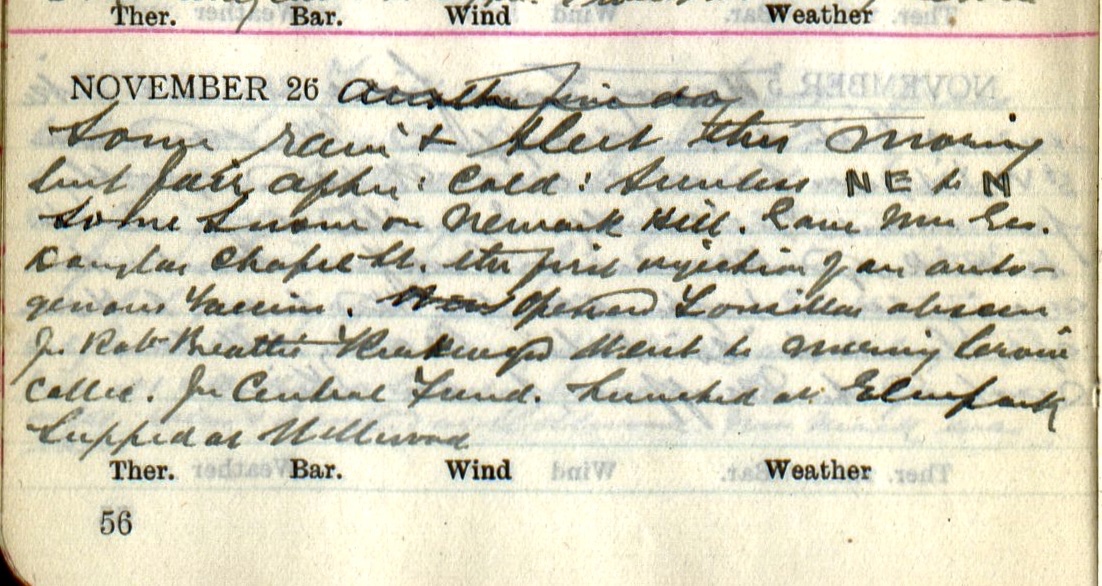 Ther. Bar. Wind Weather
NOVEMBER 26 another fine day
Some rain & sleet this morning
but fair after: Cold: Sunless NE to N
Some Snow on Newark Hill. Gave Mrs Geo.
Douglas Chapel St. the first injection of an auto-
genous Vaccine. Opened Tonsillar abscess
for Robt Beattie Went to meeting
Collec. for Central Fund. Lunched at Elmpark
Supped at Wellwood
Ther. Bar. Wind Weather
56